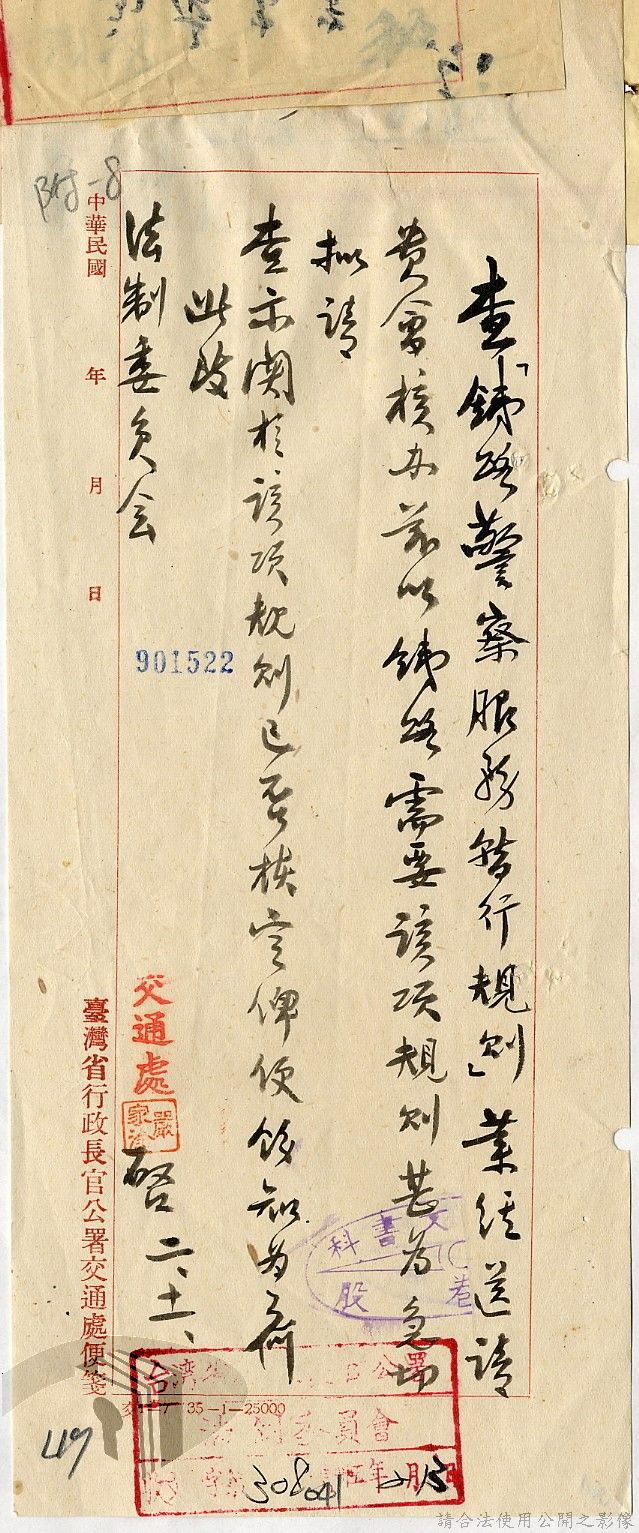 查「鉄路警察服務暫行規則」業经送請
貴會核办茲以鉄路需要該項規则甚為急切
拟請
查示関於該項規則已否核定俾便飭知為荷
此致
法制委员会
交通處
嚴家淦
啓 二、十一、
中華民國 年 月 日
臺灣省行政長官公署交通處便箋
附-8
901522
文書科
股
35-1-25000
法制委員會
308041
49
請合法使用公開之影像